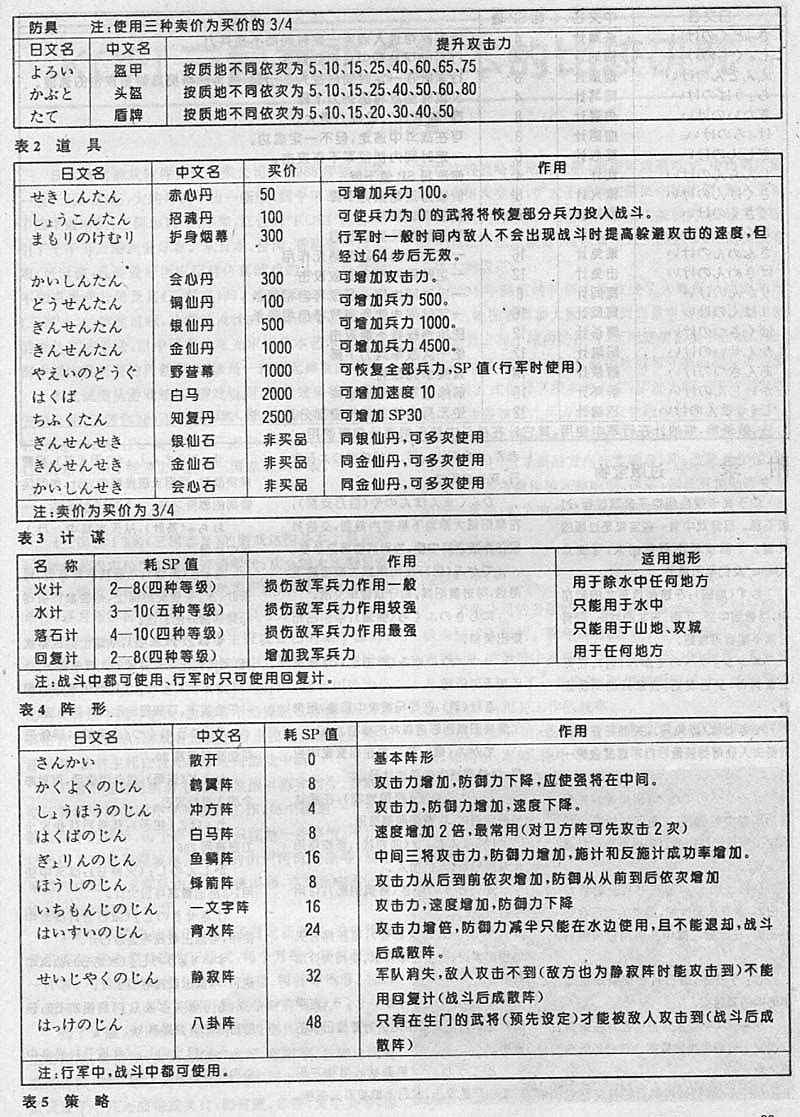 防具 注:使用三种卖价为买价的 3/4
日文名 中文名 提升攻击力
よろい 盔甲 按质地不同依次为 5、10、15、25、40、60、65、75
かぶと 头盔 按质地不同依次为 5、10、15、25、40、50、60、80
たて 盾牌 按质地不同依次为 5、10、15、20、30、40、50
表 2 道 具
日文名 中文名 买价 作用
せきしんたん 赤心丹 50 可增加兵力 100。
しょうこんたん 招魂丹 100 可使兵力为 0 的武将将恢复部分兵力投入战斗。
まもりのけむり 护身烟幕 300 行军时一般时间内敌人不会出现战斗时提高躲避攻击的速度,但
经过 64 步后无效。
かいしんたん 会心丹 300 可增加攻击力。
どうせんたん 铜仙丹 100 可增加兵力 500。
ぎんせんたん 银仙丹 500 可增加兵力 1000。
きんせんたん 金仙丹 1000 可增加兵力 4500。
やえいのどうぐ 野营幕 1000 可恢复全部兵力,SP 值(行军时使用)
はくば 白马 2000 可增加速度 10
ちふくたん 知复丹 2500 可增加 SP30
ぎんせんせき 银仙石 非买品 同银仙丹,可多次使用
きんせんせき 金仙石 非买品 同金仙丹,可多次使用
かいしんせき 会心石 非买品 同金仙丹,可多次使用
注:卖价为买价为 3/4
表 3 计 谋
名 称 耗 SP 值 作用 适用地形
火计 2—8(四种等级) 损伤敌军兵力作用一般 用于除水中任何地方
水计 3—10(五种等级) 损伤敌军兵力作用较强 只能用于水中
落石计 4—10(四种等级) 损伤敌军兵力作用最强 只能用于山地、攻城
回复计 2—8(四种等级) 增加我军兵力 用于任何地方
注:战斗中都可使用、行军时只可使用回复计。
表 4 阵 形
日文名 中文名 耗 SP 值 作用
さんかい 散开 0 基本阵形
かくよくのじん 鹤翼阵 4 攻击力增加,防御力下降,应使强将在中间。
しょうほうのじん 冲方阵 4 攻击力,防御力增加,速度下降。
はくばのじん 白马阵 8 速度增加 2 倍,最常用(对卫方阵可先攻击 2 次)
ぎょりんのじん 鱼鳞阵 16 中间三将攻击力,防御力增加,施计和反施计成功率增加。
ほうしのじん 锋箭阵 8 攻击力从后到前依次增加,防御从从前到后依次增加
いちもんじのじん 一文字阵 16 攻击力,速度增加,防御力下降
はいすいのじん 背水阵 24 攻击力增倍,防御力减半只能在水边使用,且不能退却,战斗
后成散阵。
せいじやくのじん 静寂阵 32 军队消失,敌人攻击不到(敌方也为静寂阵时能攻击到)不能
用回复计(战斗后成散阵)
はっけのじん 八卦阵 48 只有在生门的武将(预先设定)才能被敌人攻击到(战斗后成
散阵)
注:行军中,战斗中都可使用。
表 5 策 略